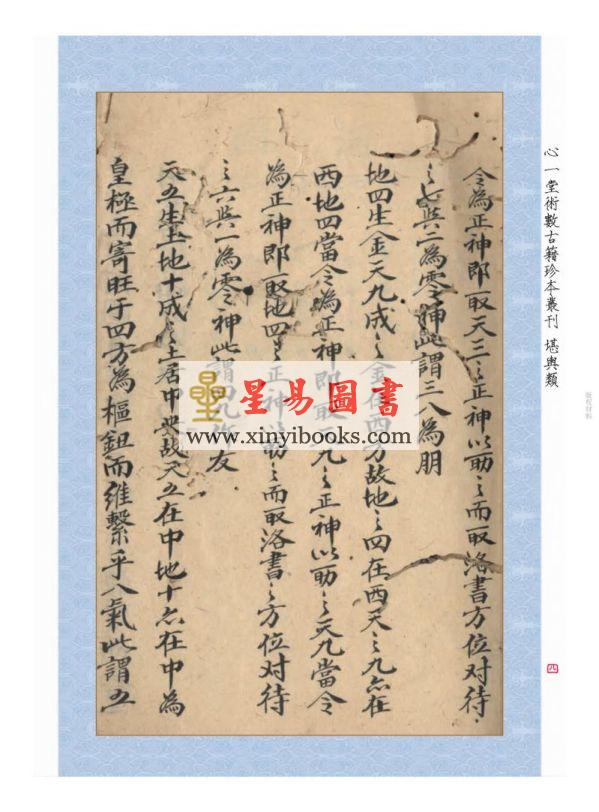 心一堂術數古籍珍本叢刊 堪輿類
四
令為正神即取天三之正神以助之而取洛書方位对待、
之七與二為零神此謂三八為朋
地四生金天九成之金在西方故地之四在西天之九亦在
西地四當令為正神即取天九之正神以助之天九當令
為正神即取地四之正神以助之而取洛書之方位对待
之六與一為零神此謂四九作友
天五生土地十成之土居中央故天五在中地十亦在中為
皇極而寄旺于四方為樞鈕而維繫乎八氣此謂五
星易圖書
www.xinyibooks.com